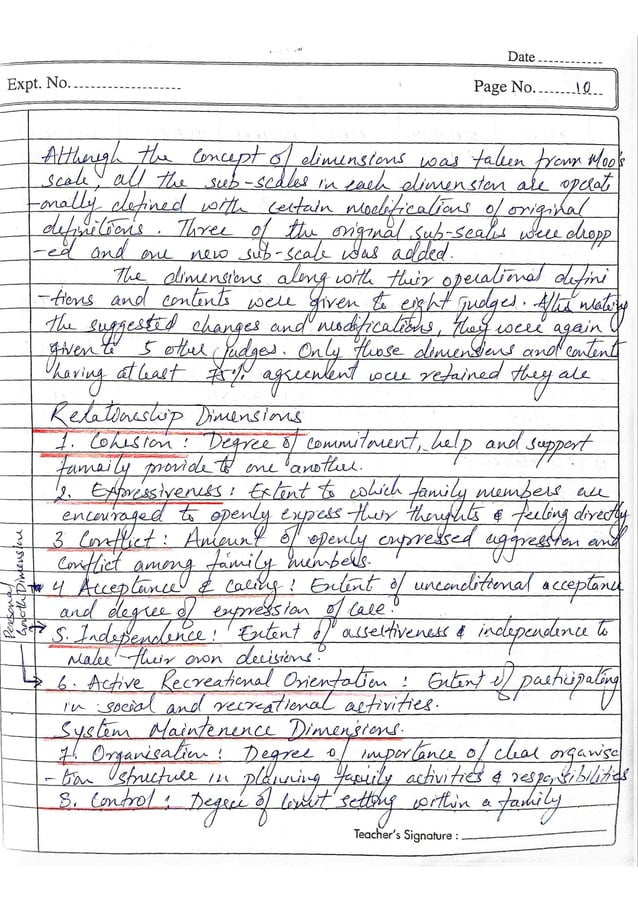 Date
Expt. No.
Page No. 10
Although the concept of dimensions was taken from Moo's
scale, all the sub-scales in each dimension are operat
-onally defined with certain modifications of original
definitions. Three of the original sub-scales were dropp
-ed and one new sub-scale was added.
The dimensions along with their operational defini
-tions and contents were given to eight judges. After making
the suggested changes and modifications, they were again
given to 5 other judges. Only those dimensions and content
having atleast 75% agreement were retained they are
Relationship Dimensions
1. Cohesion : Degree of commitment, help and support
famaily provide to one another.
2. Expressiveness : Extent to which family members are
encouraged to openly expess their thoughts & feeling directly
3 Conflict : Amount of openly expressed aggression and
conflict among family members.
4 Acceptance & caring : Extent of unconditional acceptance
and degree of expression of care.
Personal
Growth Dimensions
5. Independence : Extent of assertiveness & independence to
make their own decisions.
6. Active Recreational Orientation : Extent of participating
in social and recreational activities.
System Maintenence Dimensions.
7. Organisation : Degree of importance of clear organisa
-tion structure in planning family activities & responsibilities
8. Control : Degree of limit setting within a family
Teacher's Signature :